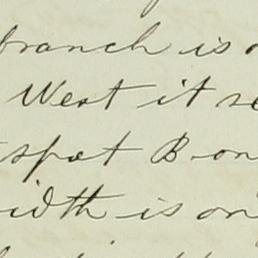 branch is
West it se
spot B on
width is on